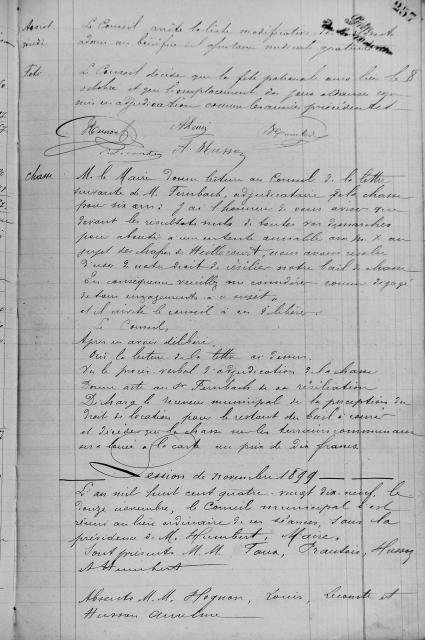 257
Assist.
médi.
Le Conseil arrête la liste modificative
admis au bénéfice de l'assistance médicale gratuite
Fête
Le Conseil décide que la fête patronale aura lieu le 8
octobre et que l'emplacement des jeux sera
mis en adjudication comme les années précédentes
Husson
Humbert
Lecomte A. Husson
Chasse
M. le Maire donne lecture au Conseil de la lettre
suivante de M. Fernbach, adjudicataire de la chasse
pour six ans : j'ai l'honneur de vous aviser que
devant les résultats nuls de toutes vos démarches
pour aboutir à une entente amiable avec M. X au
sujet des chasses de nous avons résolu
d'user de notre droit de résilier notre bail de chasse
En conséquence veuillez me considérer comme dégagé
de tous engagements à ce sujet,
et il invite le conseil à en délibérer.
Le Conseil,
Après en avoir délibéré,
Ouï la lecture de la lettre ci dessus.
Vu le procès verbal d'adjudication de la chasse
Donne acte au Sr Fernbach de sa résiliation
Décharge le receveur municipal de la perception du
droit de location pour le restant du bail à courir
et décide que la chasse sur les terrains communaux
sera louée à la carte au prix de dix francs
Session de novembre 1899
L'an mil huit cent quatre-vingt dix neuf, le
douze novembre, le Conseil municipal s'est
réuni au lieu ordinaire de ses séances, sous la
présidence de M. Humbert, Maire,
Sont présents M.M. Husson
et Humbert
Absents M.M. Hognon, Louis, Lecomte et
Husson Anselme